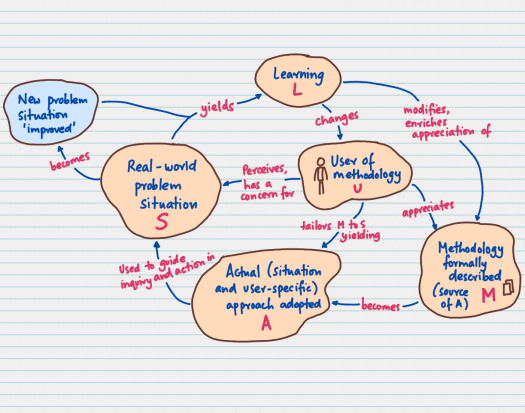 Learning
L
yields
changes
modifies,
enriches
appreciation of
New problem
situation
'improved'
becomes
Real-world
problem
situation
S
Perceives,
has a
concern for
User of
methodology
U
appreciates
tailors M to S
yielding
Used to guide
inquiry and action in
Actual (situation
and user-specific)
approach adopted
A
becomes
Methodology
formally
described
(source
of A)
M